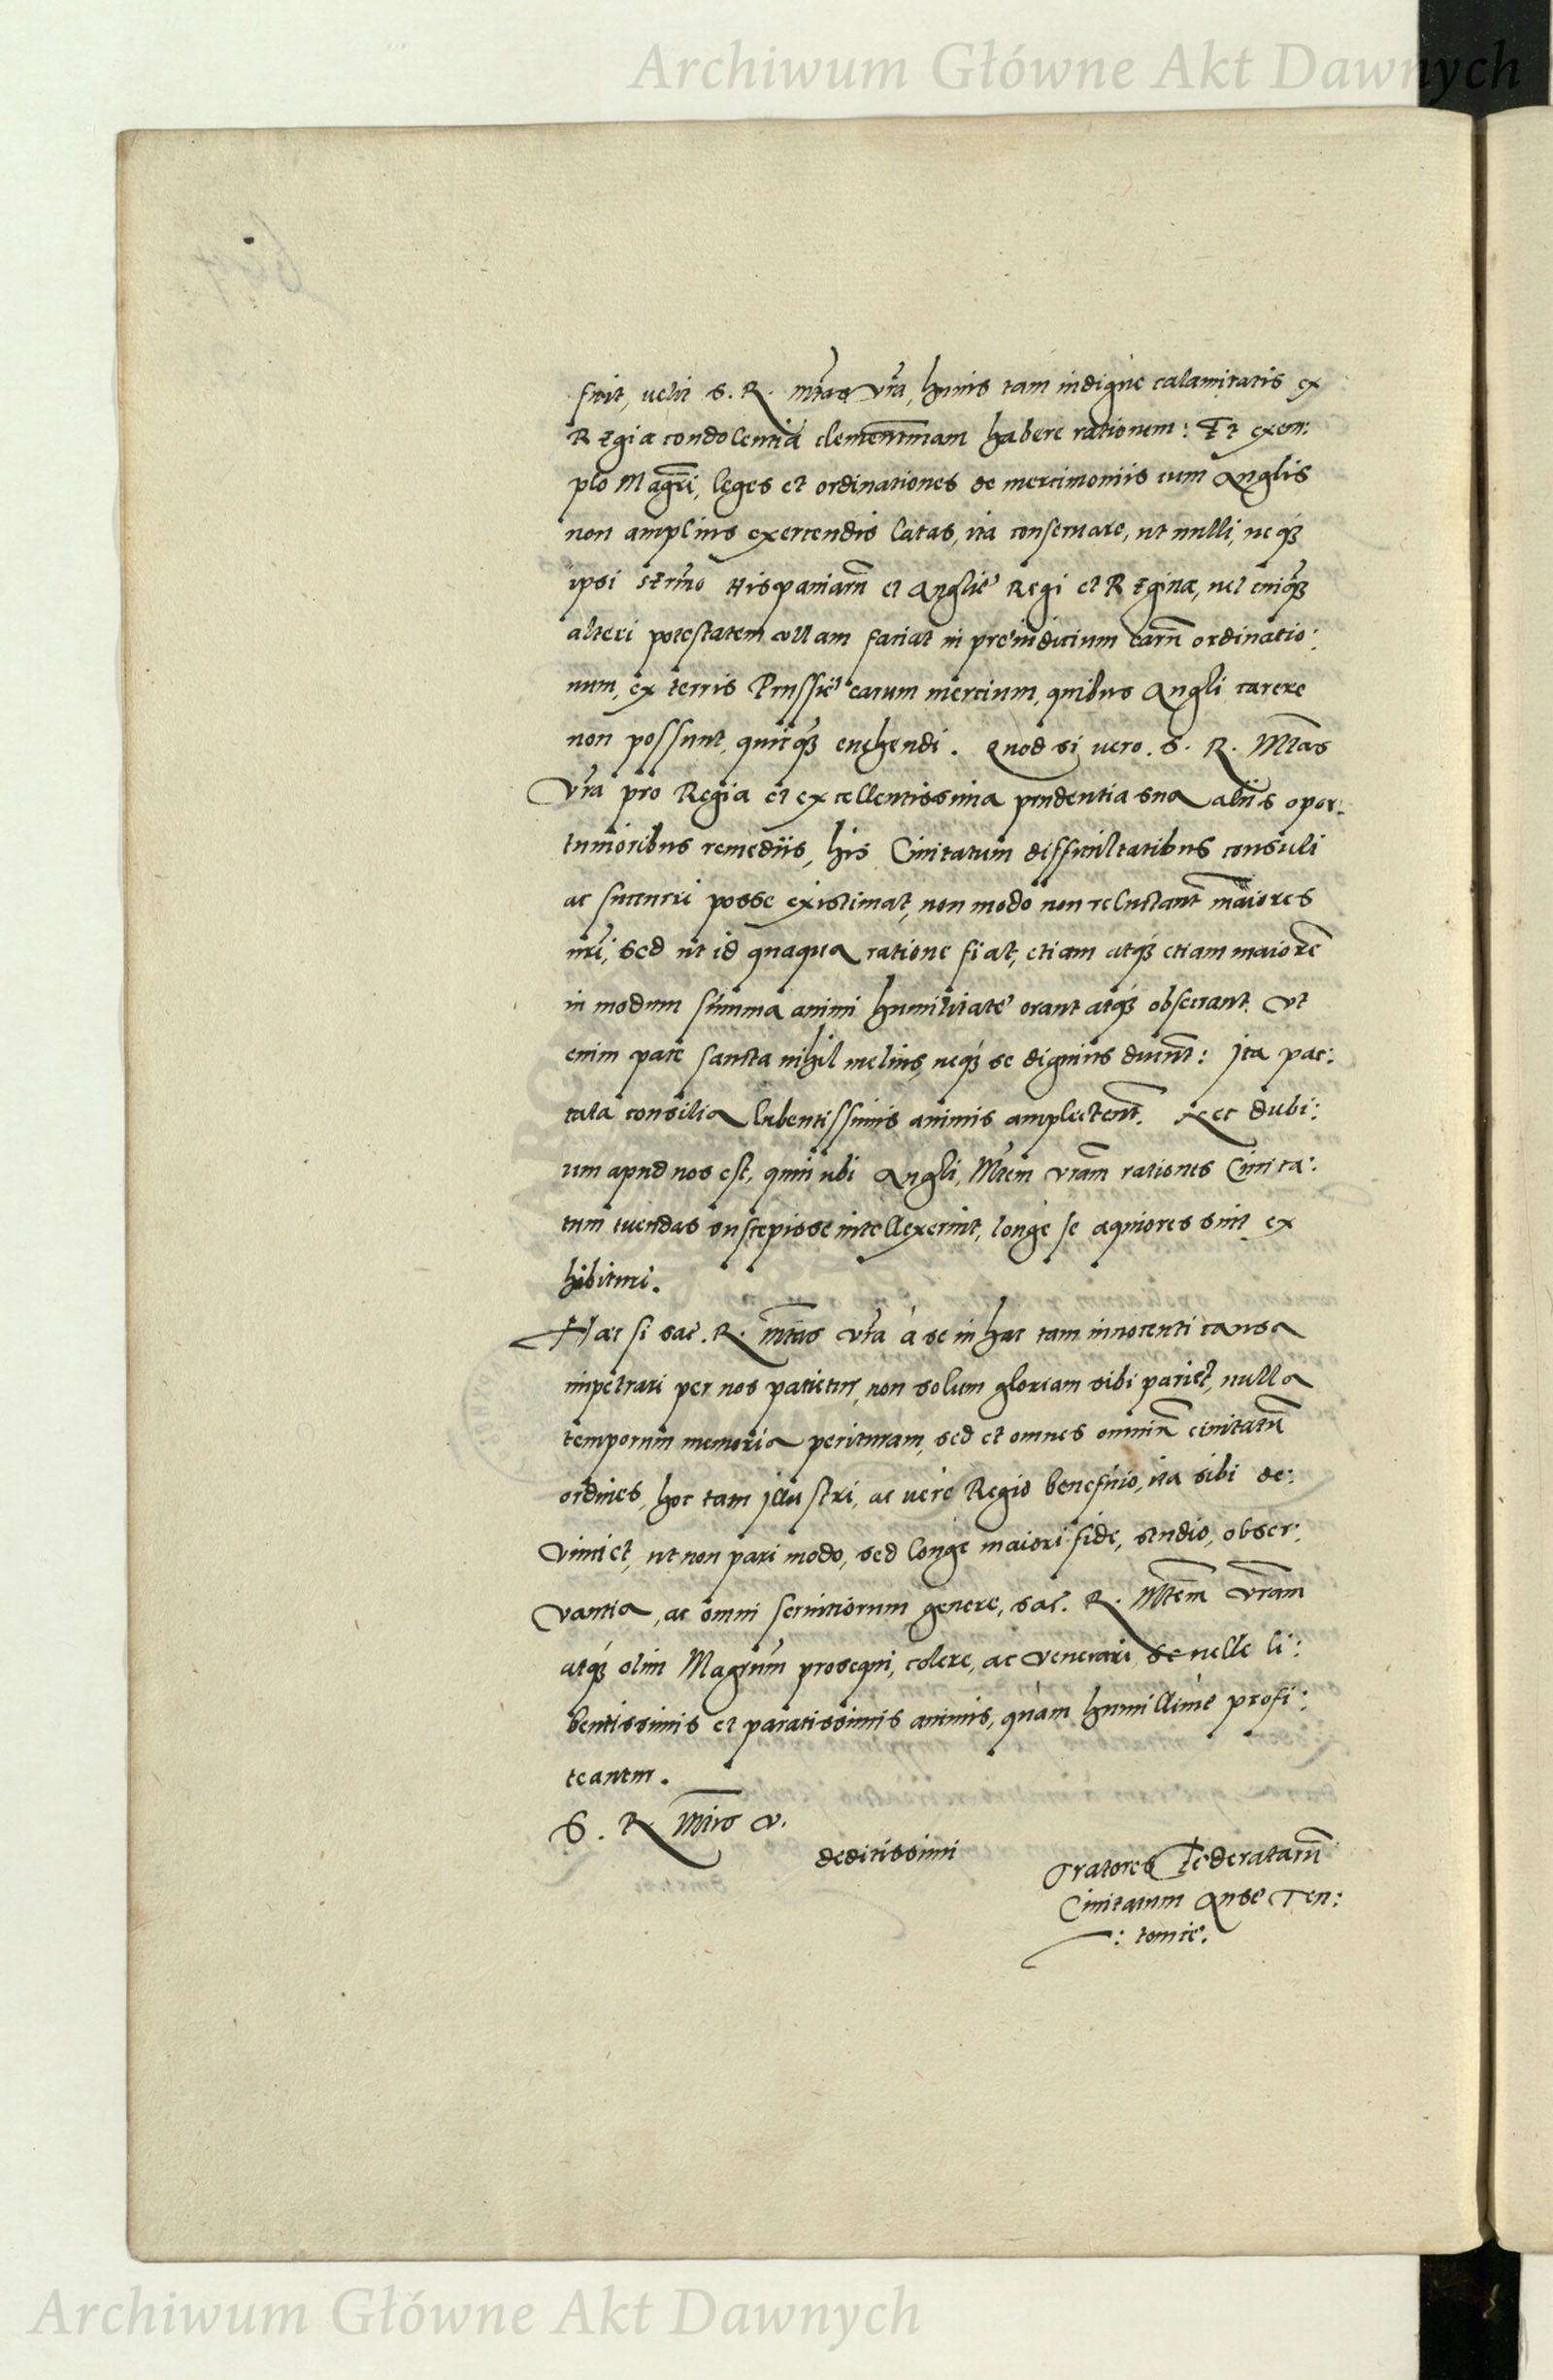 Archiwum Główne Akt Dawnych
fecit, velit S. R. Mtas vra, huius tam indigne calamitatis ex
Regia condolentia clementmam habere rationem: Et exem:
plo Magri, leges et ordinationes de mercimoniis cum Anglis
non amplius exercendis latas, ita conservare, ut nulli, neq3
ipsi Sermo Hispaniarũ et Anglie Regi et Reginæ, vel cuiq3
alteri potestatem ullam faciat in preiudicium earũ ordinatio:
num, ex terris Prussie earum mercium, quibus Angli carere
non possunt, quicq3 evehendi. Quod si vero. S. R. Mtas
Vra pro Regia et excellentissima prudentia sua aliis opor:
tunioribus remediis, his Civitatum difficultatibus consuli
ac succurri posse existimat, non modo non reluctant maiores
nri, sed ut id quaqua ratione fiat, etiam atq3 etiam maiorẽ
in modum summa animi humilitate orant atq3 obsecrant. Ut
enim pace sancta nihil melius, neq3 se dignius ducunt: Ita pac:
cata consilia lubentissimis animis amplectent. Nec dubi:
um apud nos est, quin ubi Angli, Mtem vram rationes Civita:
tum tuendas suscepisse intellexerint, longe se æquiores sint ex
hibituri.
Hæc si sac. R. Mtas vra à se in hac tam innocenti causa
impetrari per nos patietur, non solum gloriam sibi pariet, nulla
temporum memoria perituram, sed et omnes omniũ civitatũ
ordines, hoc tam illustri, ac vere Regio beneficio, ita sibi de:
vinciet, ut non pari modo, sed longe maiori fide, studio, obser:
vantia, ac omni servitiorum genere, sac. R. Mtem vram
atq3 olim Magrum prosequi, colere, ac venerari se velle li:
bentissimis et paratissimis animis, quàm humillime profi:
teantur.
S. R. Mtis v.
deditissimi
Oratores Federatarũ
Civitatum Anse Teu:
: tonice.
Archiwum Główne Akt Dawnych